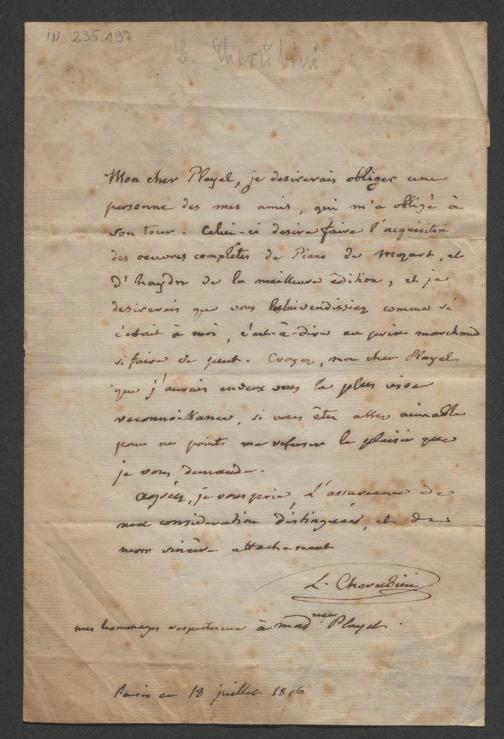 IN 235.197
L. Cherubini
Mon cher Pleyel, je desirerais obliger une
personne des mes amis, qui m'a obligé à
son tour. Celui-ci desire faire l'acquisition
des oeuvres complètes de Piano de Mozart, et
d'haydn de la meilleure édition, et je
desirerais que vous les lui vendissiez comme si
c'était à moi, c'est-à-dire au prix marchand
si faire se peut. Croyez, mon cher Pleyel
que j'aurais envers vous la plus vive
reconnoissance, si vous êtes assez aimable
pour ne point me refuser le plaisir que
je vous demande.
Agréez, je vous prie, L'assurance de
ma consideration distinguée, et de
mon sincère attachement
L. Cherubini
mes hommages respectueux à mad.me Pleyel.
Paris ce 18 juillet